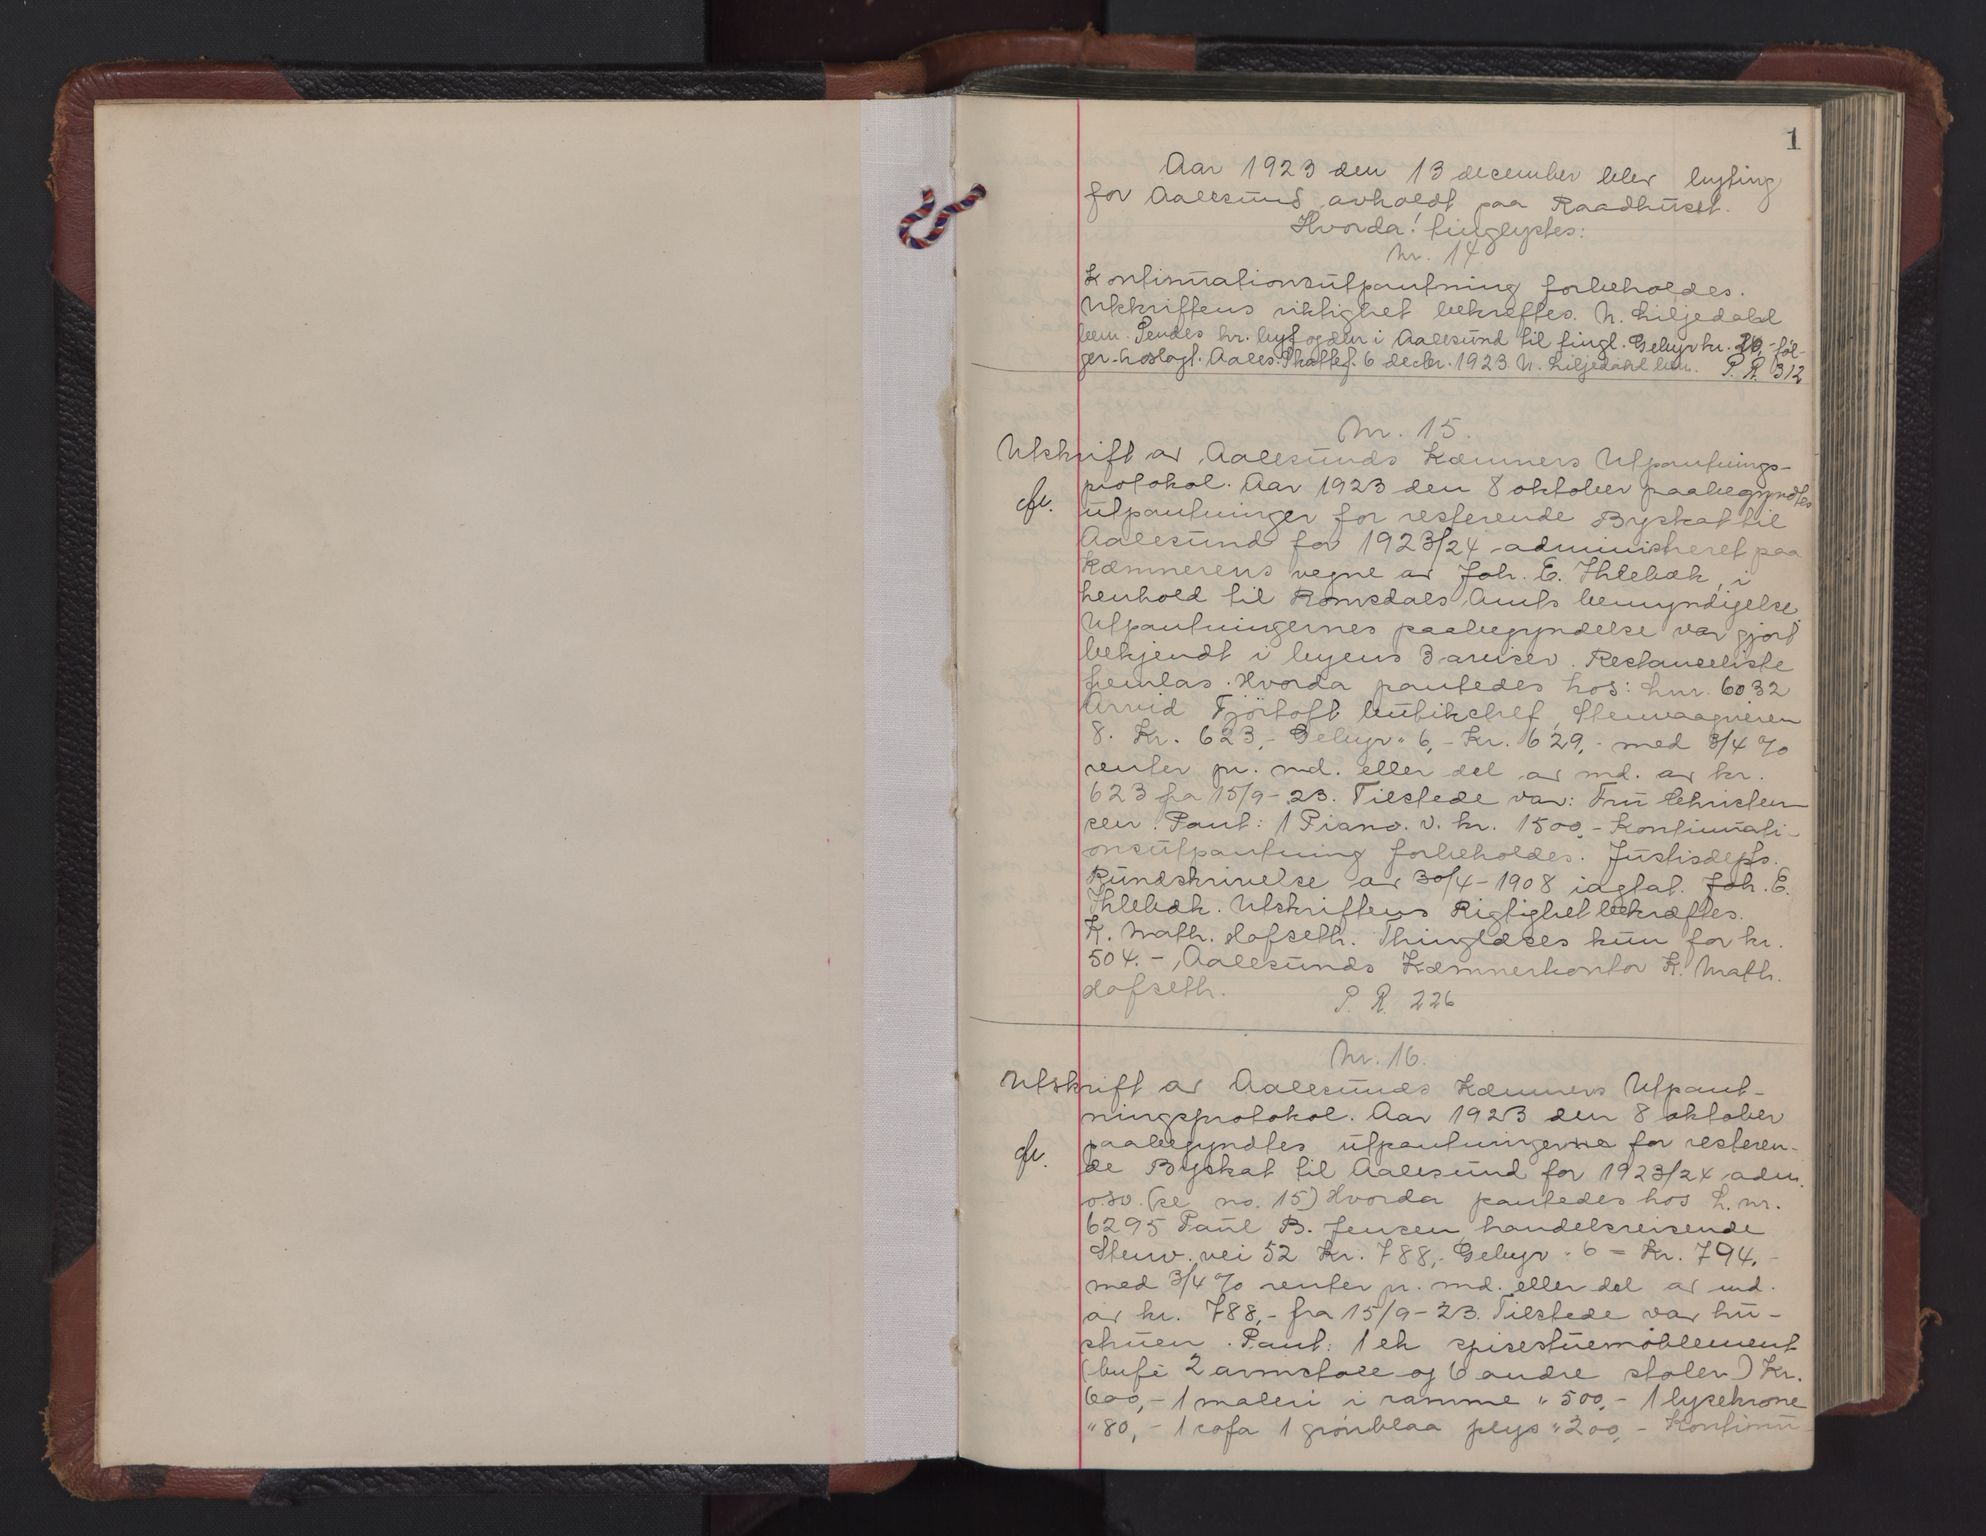 1
Aar 1923 den 13 december blev byting
for Aalesund avholdt paa Raadhuset.
Hvorda! tinglystes:
Nr. 14
Kontinuationsutpantning forbeholdes.
Utskriftens riktighet bekræftes. N. Liljedahl
bem. Sendes hr. byfogden i Aalesund til tingl. Gebyr kr. 20,- føl-
ger hoslagt. Aales. Skattef. 6 decbr. 1923 N. Liljedahl bem. P. R. 312
Nr. 15.
Utskrift av Aalesunds Kæmners Utpantnings-
protokol. Aar 1923 den 8 oktober paabegyndtes
utpantninger for resterende Byskat til
Aalesund for 1923/24 administreret paa
Kæmnerens vegne av Joh. E. Ihlebæk, i
henhold til Romsdals Amts bemyndigelse.
Utpantningernes paabegyndelse var gjort
bekjendt i byens 3 aviser. Restanceliste
fremlas. Hvorda pantedes hos: Lnr. 6032
Arvid Fjörtoft butikchef, Stenvaagveien
8. Kr. 623,- Gebyr " 6,- Kr. 629,- med 3/4 %
renter pr. md. eller del av md. av kr.
623 fra 15/9-23. Tilstede var: Fru Christen-
sen. Pant: 1 Piano. v. kr. 1500,- Kontinuati-
onsutpantning forbeholdes. Justisdepts.
Rundskrivelse av 30/4-1908 iagtat. Joh. E.
Ihlebæk. Utskriftens Rigtighet bekræftes.
K. Math. Hofseth. Thinglæses kun for kr.
504.-, Aalesunds Kæmnerkontor K. Math.
Hofseth.
P. R. 226
Nr. 16.
Utskrift av Aalesunds Kæmners Utpant-
ningsprotokol. Aar 1923 den 8 oktober
paabegyndtes utpantningerne for resteren-
de Byskat til Aalesund for 1923/24 adm.
o.s.v. (se no. 15) Hvorda pantedes hos L. nr.
6295 Paul B. Jensen, handelsreisende
Stenv. vei 52 Kr. 788,- Gebyr " 6 = Kr. 794,-
med 3/4 % renter pr. md. eller del av md.
av kr. 788,- fra 15/9-23. Tilstede var hu-
struen. Pant: 1 ek spisestuemöblement
(bufé 2 armstole og 6 andre stoler) Kr.
600,- 1 maleri i ramme " 500,- 1 lysekrone
" 80,- 1 sofa 1 grönblaa plys " 200,- Kontinu-